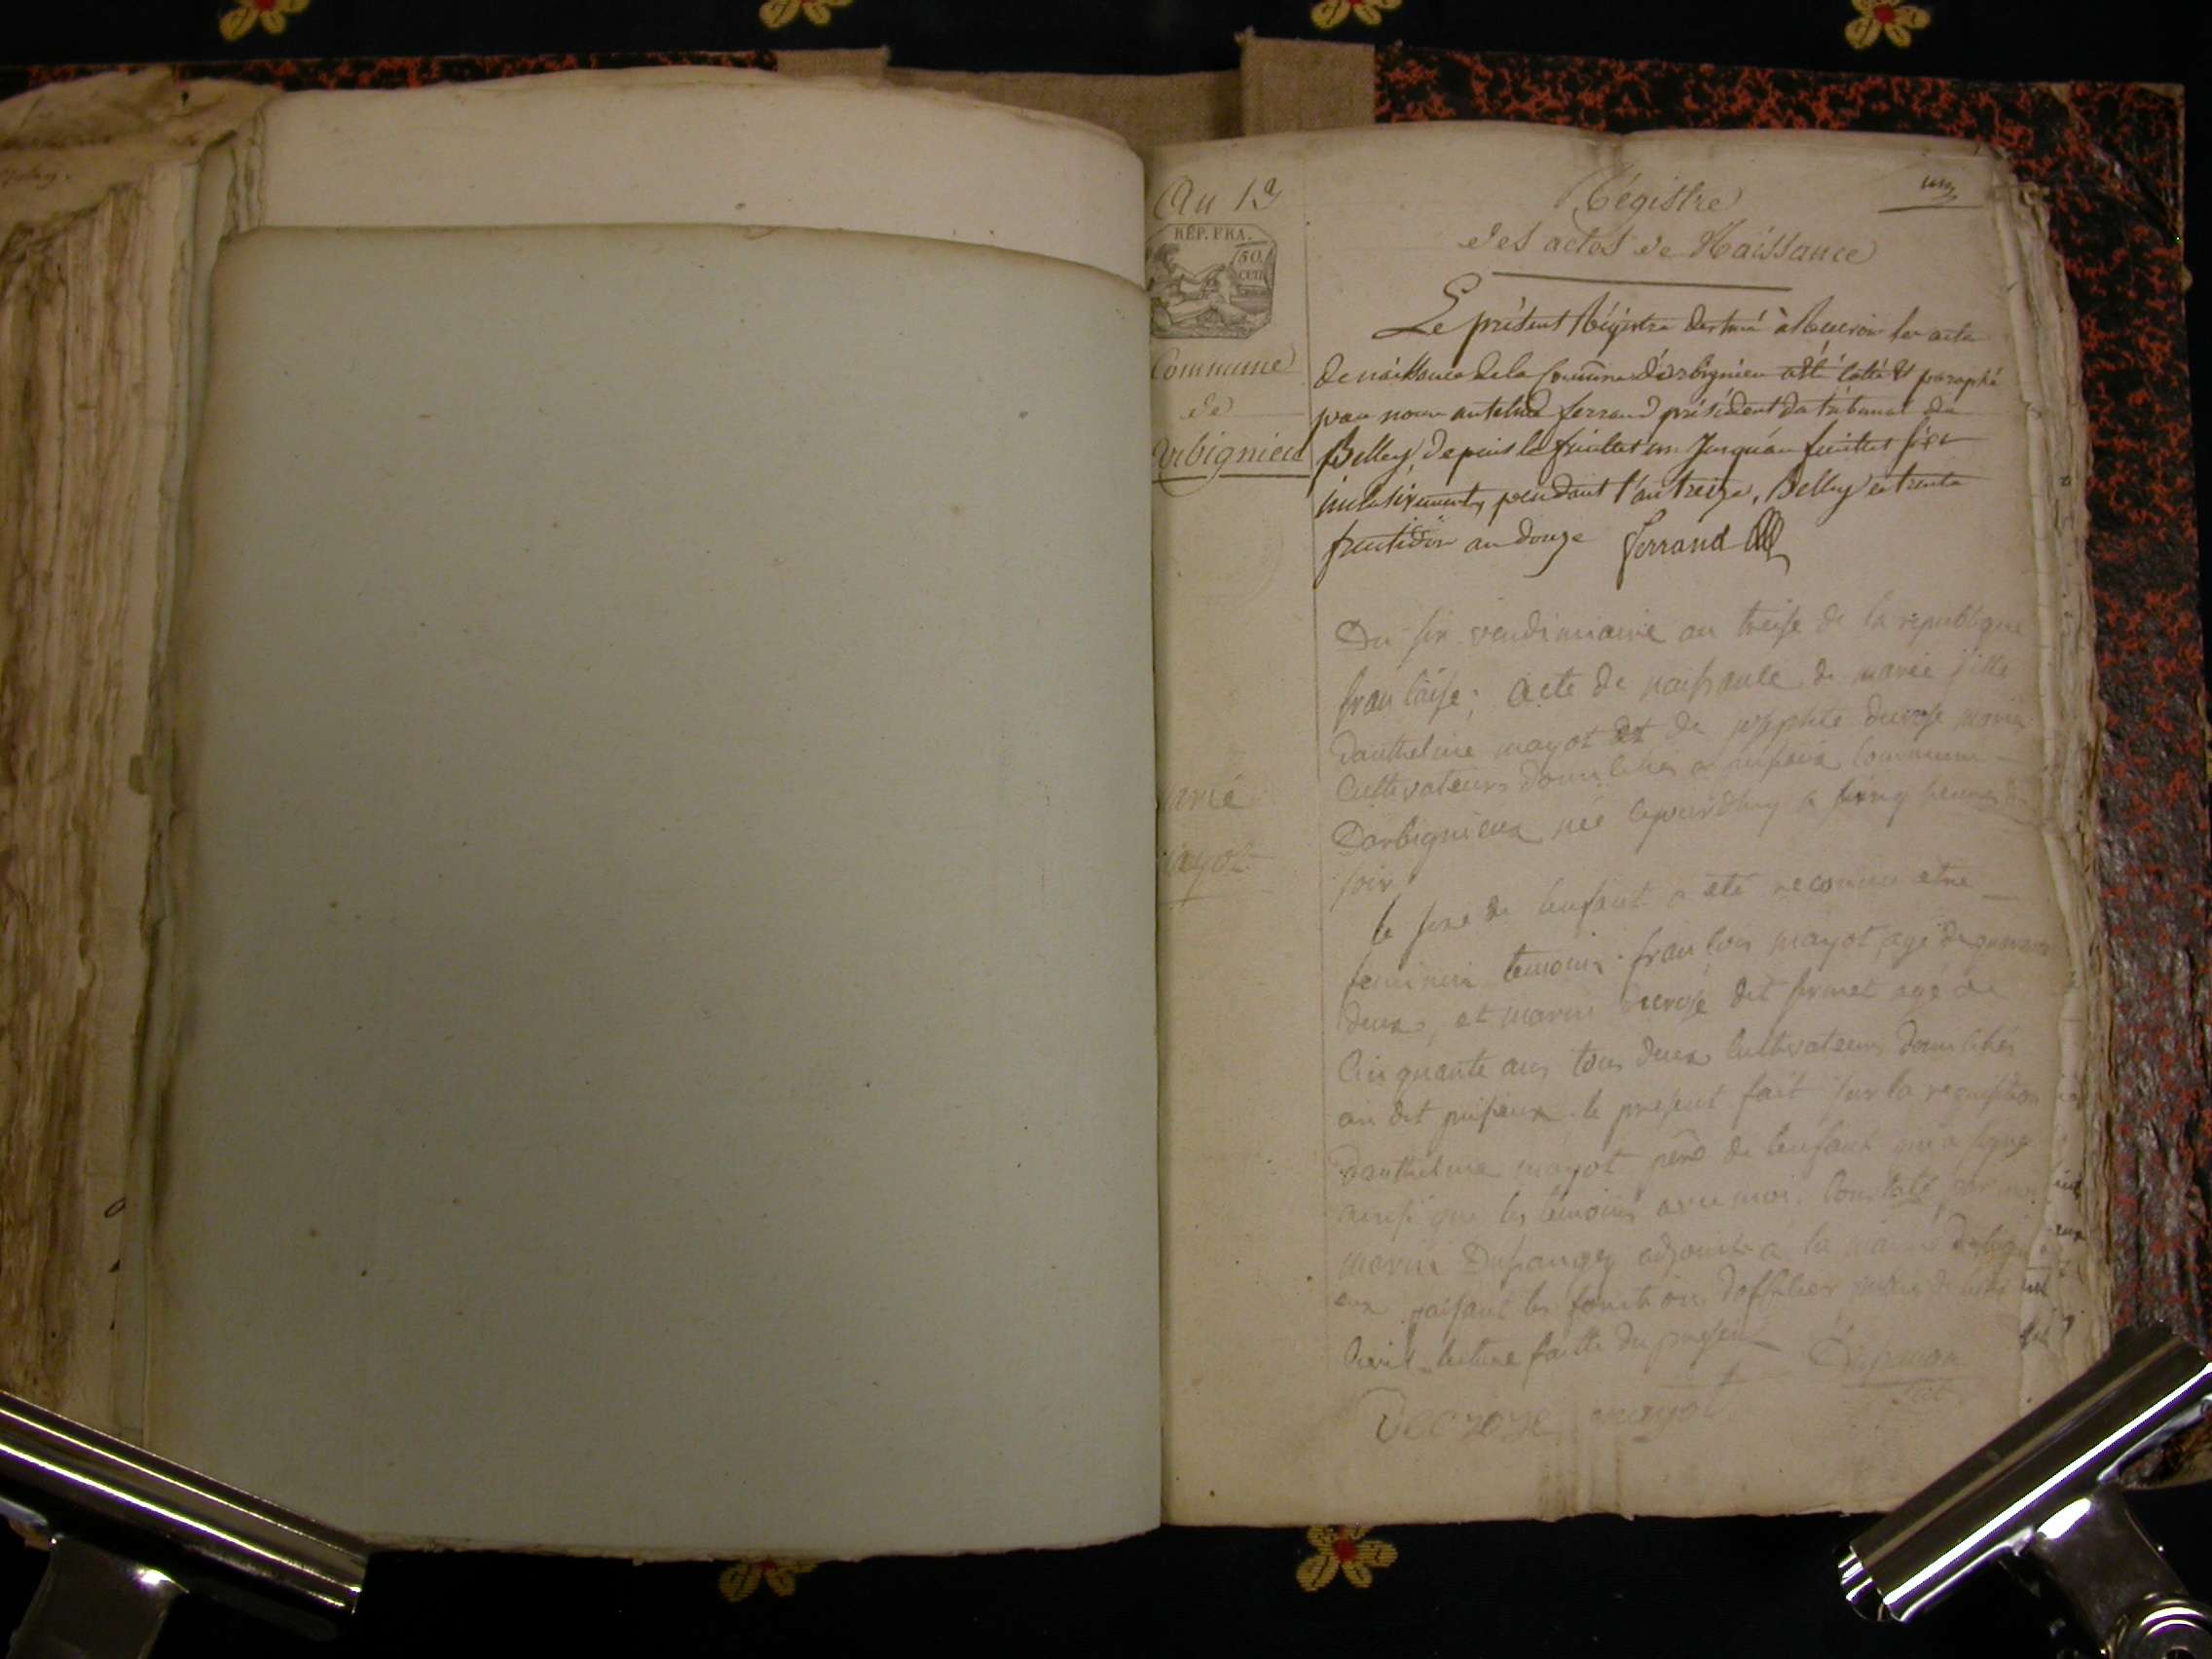 An 13
REP. FRA.
50.
CEN.
Commune
de
arbignieu
un
Régistre
des actes de Naissance
Le présent Régistre destiné à Recevoir les actes
de naissance de la Commune d'arbignieu a été cotté & paraphé
par nous antelme ferrand président du tribunal de
Belley, depuis le feuillet un Jusqu'au feuillet six
inclusivement, pendant l'an treize, Belley ce trente
fructidor an douze ferrand
Du six vendimiaire an treise de la republique
francaise; acte de naissance de marie fille
danthelme mayot et de josephte decrose mariés
cultivateurs domicilies a peisieux commune
Darbignieux née cejourdhuy a cinq heures du
soir
le sexe de lenfant a ete reconnu etre
feminin temoins francois mayot, agé de quarante
deux, et marin decrose dit age de
cinquante ans tous deux cultivateurs domicilies
au dit peisieux. le present fait sur la requisition
danthelme mayot père de lenfant qui a signe
ainsi que les temoins avec moi. Constaté par moi
marin adjoint a la mairie darbigni
eux faisant les fonctions dofficier public de letat
civil lecture faitte du present
marie
mayot
Decroze mayot